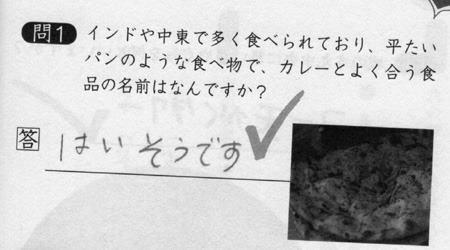 問1 インドや中東で多く食べられており、平たい
パンのような食べ物で、カレーとよく合う食
品の名前はなんですか？
答 はい そうです